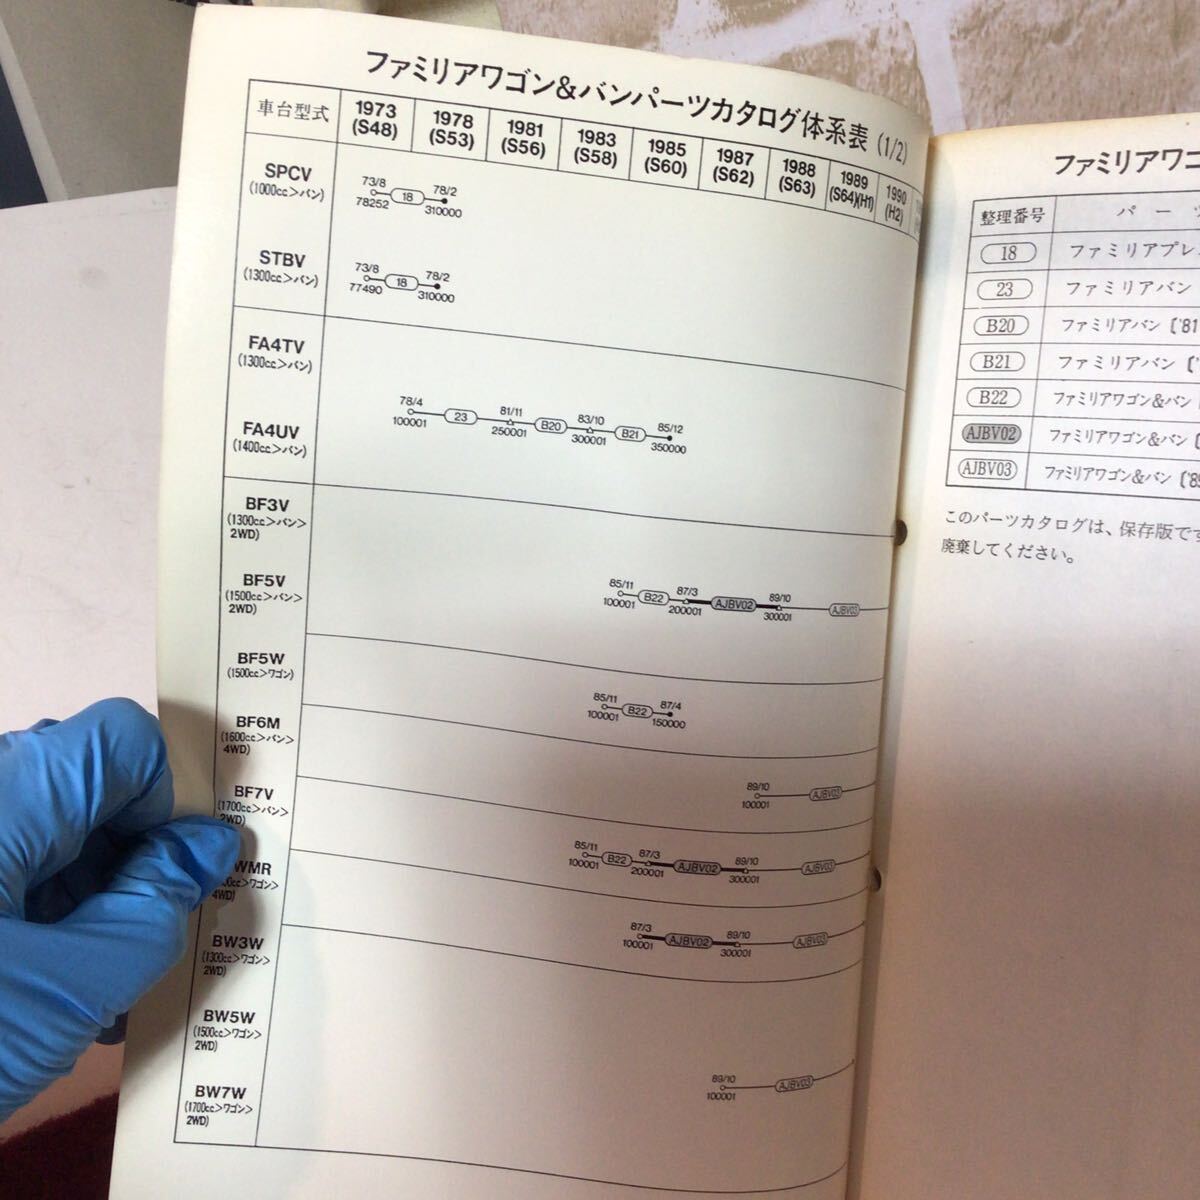 ファミリアワゴン&バンパーツカタログ体系表 (1/2)
車台型式
1973 (S48)
1978 (S53)
1981 (S56)
1983 (S58)
1985 (S60)
1987 (S62)
1988 (S63)
1989 (S64)(H1)
1990 (H2)
SPCV
(1000cc>バン)
73/8 78/2
18
78252 310000
STBV
(1300cc>バン)
73/8 78/2
18
77490 310000
FA4TV
(1300cc>バン)
FA4UV
(1400cc>バン)
78/4 81/11 83/10 85/12
23 B20 B21
100001 250001 300001 350000
BF3V
(1300cc>バン>
2WD)
BF5V
(1500cc>バン>
2WD)
85/11 87/3 89/10
B22 AJBV02 AJBV03
100001 200001 300001
BF5W
(1500cc>ワゴン)
85/11 87/4
B22
100001 150000
BF6M
(1600cc>バン>
4WD)
89/10
AJBV03
100001
BF7V
(1700cc>バン>
2WD)
85/11 87/3 89/10
B22 AJBV02 AJBV03
100001 200001 300001
WMR
cc>ワゴン>
4WD)
87/3 89/10
AJBV02 AJBV03
100001 300001
BW3W
(1300cc>ワゴン>
2WD)
BW5W
(1500cc>ワゴン>
2WD)
89/10
AJBV03
100001
BW7W
(1700cc>ワゴン>
2WD)
ファミリアワゴ
整理番号 パ ー ツ
18 ファミリアプレ
23 ファミリアバン
B20 ファミリアバン〔'81
B21 ファミリアバン〔'
B22 ファミリアワゴン&バン
AJBV02 ファミリアワゴン&バン〔
AJBV03 ファミリアワゴン&バン〔'89
このパーツカタログは、保存版です
廃棄してください。